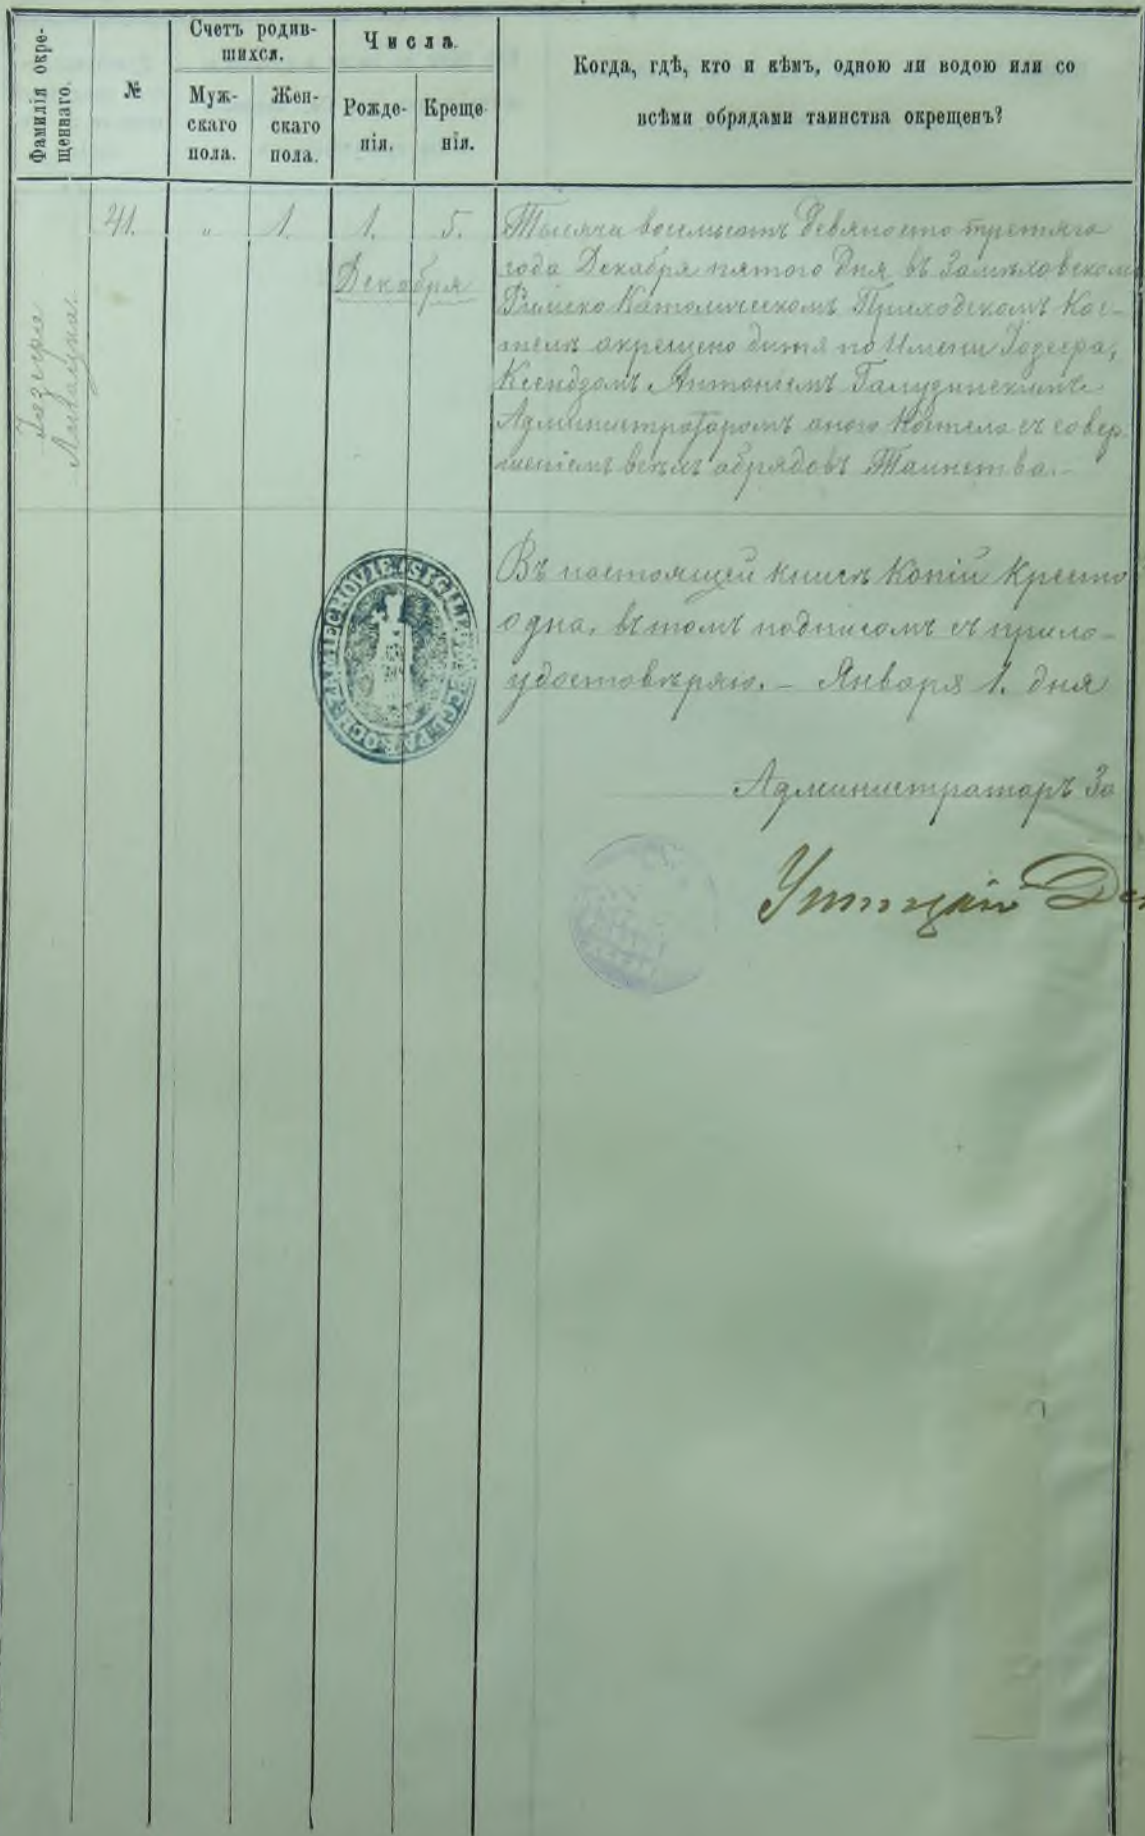 Фамилія окре-
щеннаго.
№
Счетъ родив-
шихся.
Муж-
скаго
пола.
Жен-
скаго
пола.
Числа.
Рожде-
нія.
Креще-
нія.
Когда, гдѣ, кто и кѣмъ, одною ли водою или со
всѣми обрядами таинства окрещенъ?
41.
"
1.
1.
5.
Декабря
Тысяча восемьсотъ девяносто третяго
года Декабря пятого дня въ
Римско Католическомъ Приходскомъ Кос-
телѣ окрещено дитя по Имени Іозефа,
Ксендзомъ Антоніемъ
Администраторомъ оного Костела съ совер
шеніемъ всѣхъ обрядовъ Таинства.-
Въ настоящей книгѣ Копій Крести
одна, въ томъ подписомъ съ прило-
удостовѣряю. - Января 1. дня
Администраторъ За